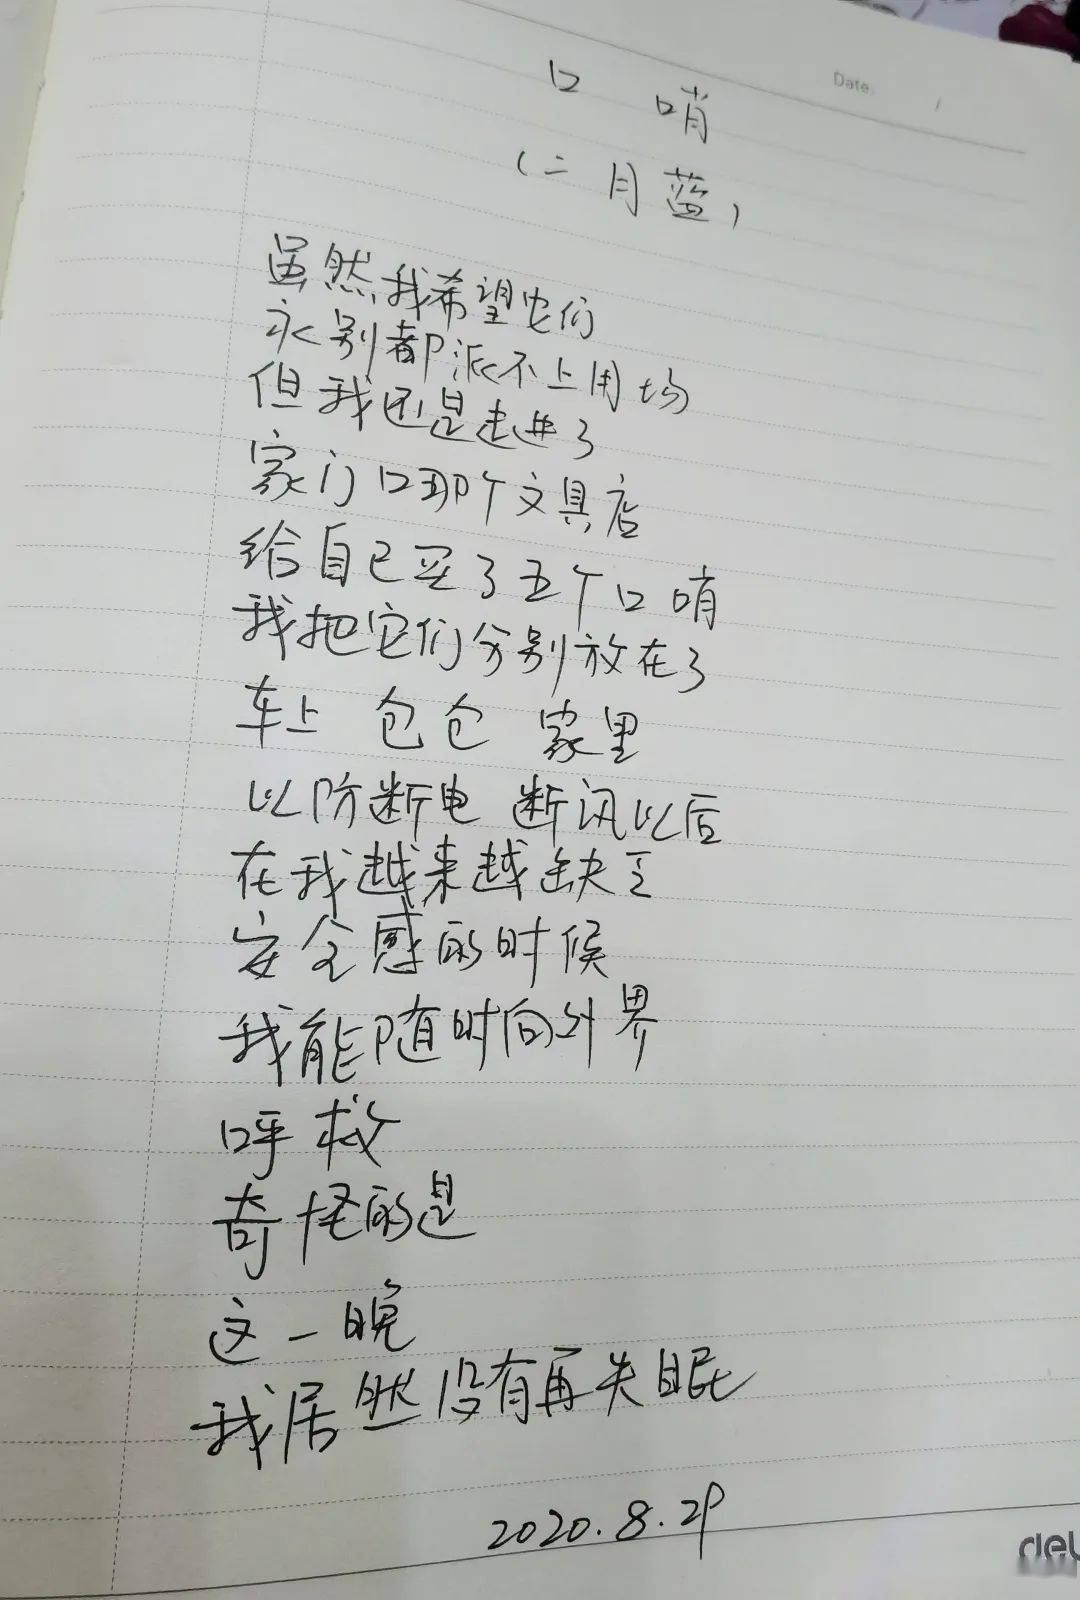 Date:
口 哨
(二月蓝)
虽然我希望它们
永别都派不上用场
但我还是走进了
家门口那个文具店
给自己买了五个口哨
我把它们分别放在了
车上 包包 家里
以防断电 断讯以后
在我越来越缺乏
安全感的时候
我能随时向外界
呼救
奇怪的是
这一晚
我居然没有再失眠
2020.8.29